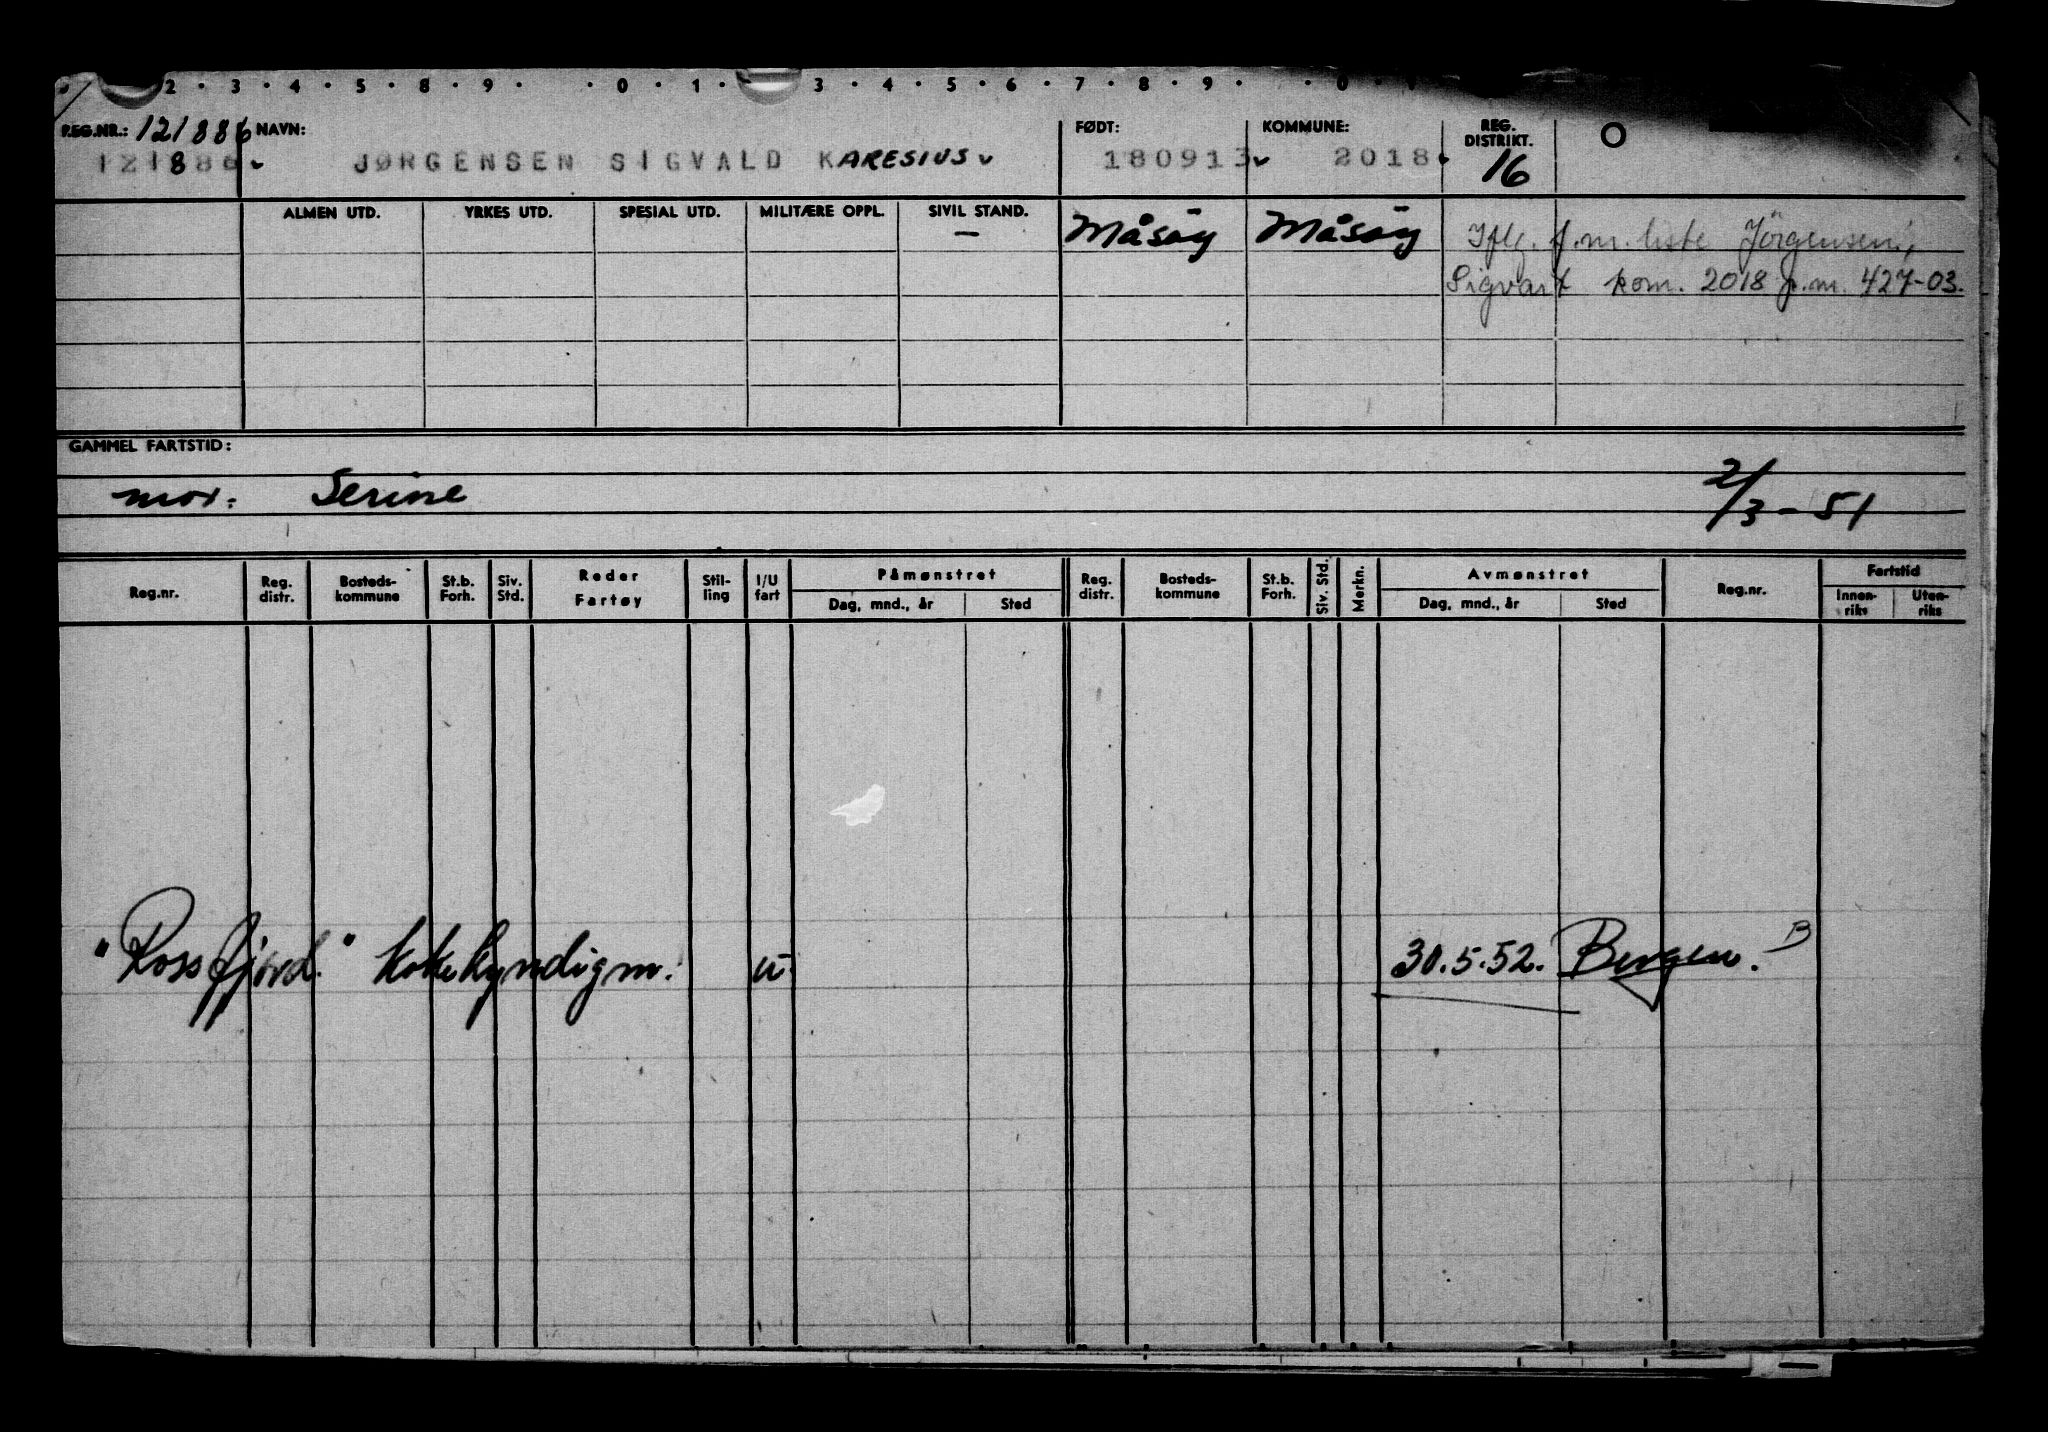 2 · 3 · 4 · 5 · 8 · 9 · · 0 · 1 · 3 · 4 · 5 · 6 · 7 · 8 · 9 · · 0 ·
REG.NR.: 121886 NAVN: FØDT: KOMMUNE: REG. DISTRIKT.
121886 JØRGENSEN SIGVALD KARESIUS 180913 2018 16
ALMEN UTD. YRKES UTD. SPESIAL UTD. MILITÆRE OPPL. SIVIL STAND.
— Måsöy Måsöy Iflg. f.m. liste Jörgensen,
Sigvart kom. 2018 f.m. 427-03.
GAMMEL FARTSTID:
mor: Serine 2/3-51
Reg.nr. Reg. distr. Bosteds-kommune St.b. Forh. Siv. Std. Reder Fartøy Stil-ling I/U fart Påmønstret Dag, mnd., år Sted Reg. distr. Bosteds-kommune St.b. Forh. Siv. Std. Merkn. Avmønstret Dag, mnd., år Sted Reg.nr. Fartstid Innen-riks Uten-riks
"Rossfjord." kokekyndigm. u 30.5.52. Bergen. B